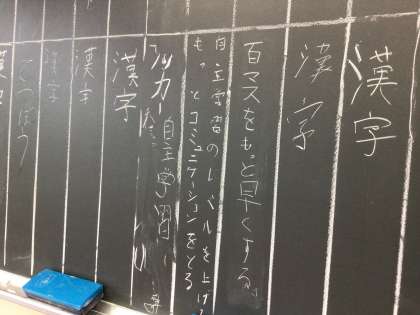 漢字
漢字
百マスをもっと早くする。
自主学習のレベルを上げる
もっとコミュニケーションをとる
サッカー
自主学習
漢字
漢字
漢字
てつぼう
漢